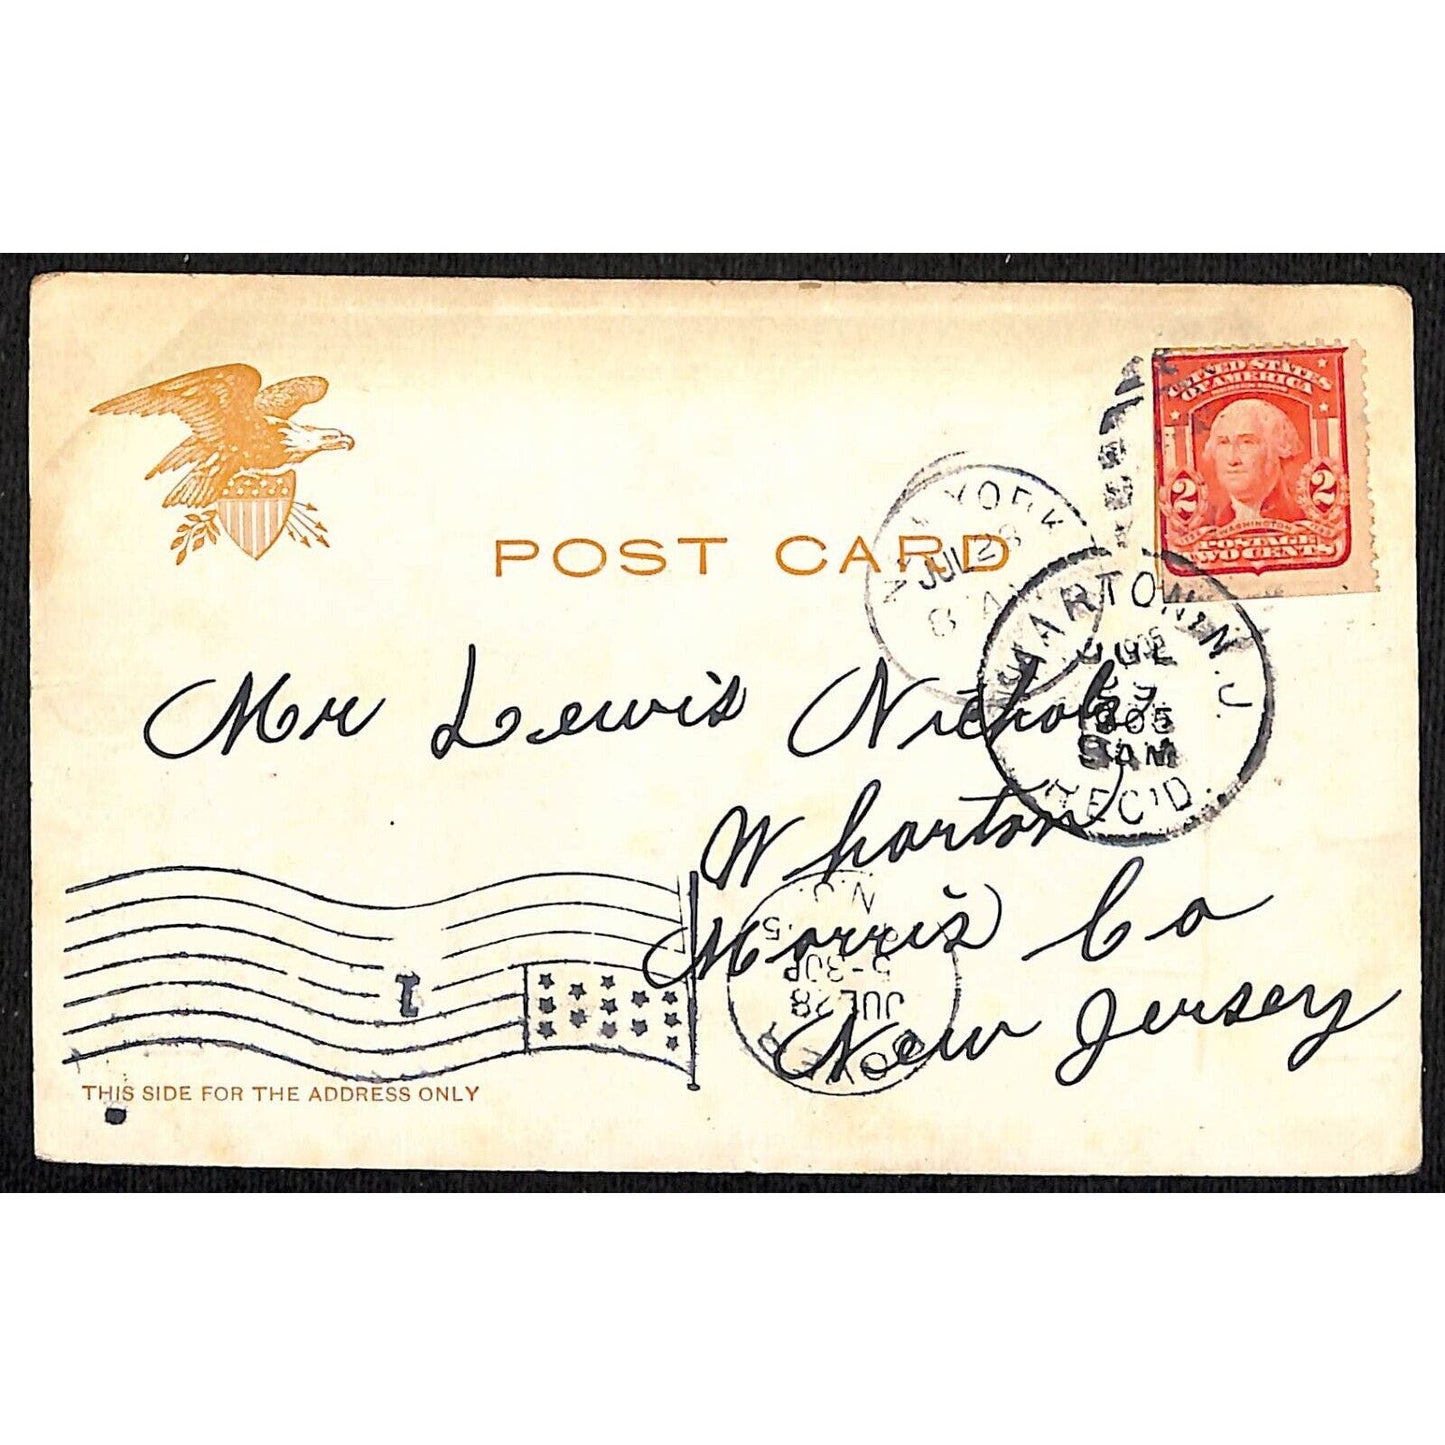 UNITED STATES
OF AMERICA
2 2
WASHINGTON
POSTAGE
TWO CENTS
POST CARD
YORK
JUL 28
WHARTON, N.J.
JUL
1905
9 AM
REC'D.
Mr Lewis Nichols
Wharton
Morris Co
New Jersey
N.J.
5-30P
JUL 28
1
THIS SIDE FOR THE ADDRESS ONLY